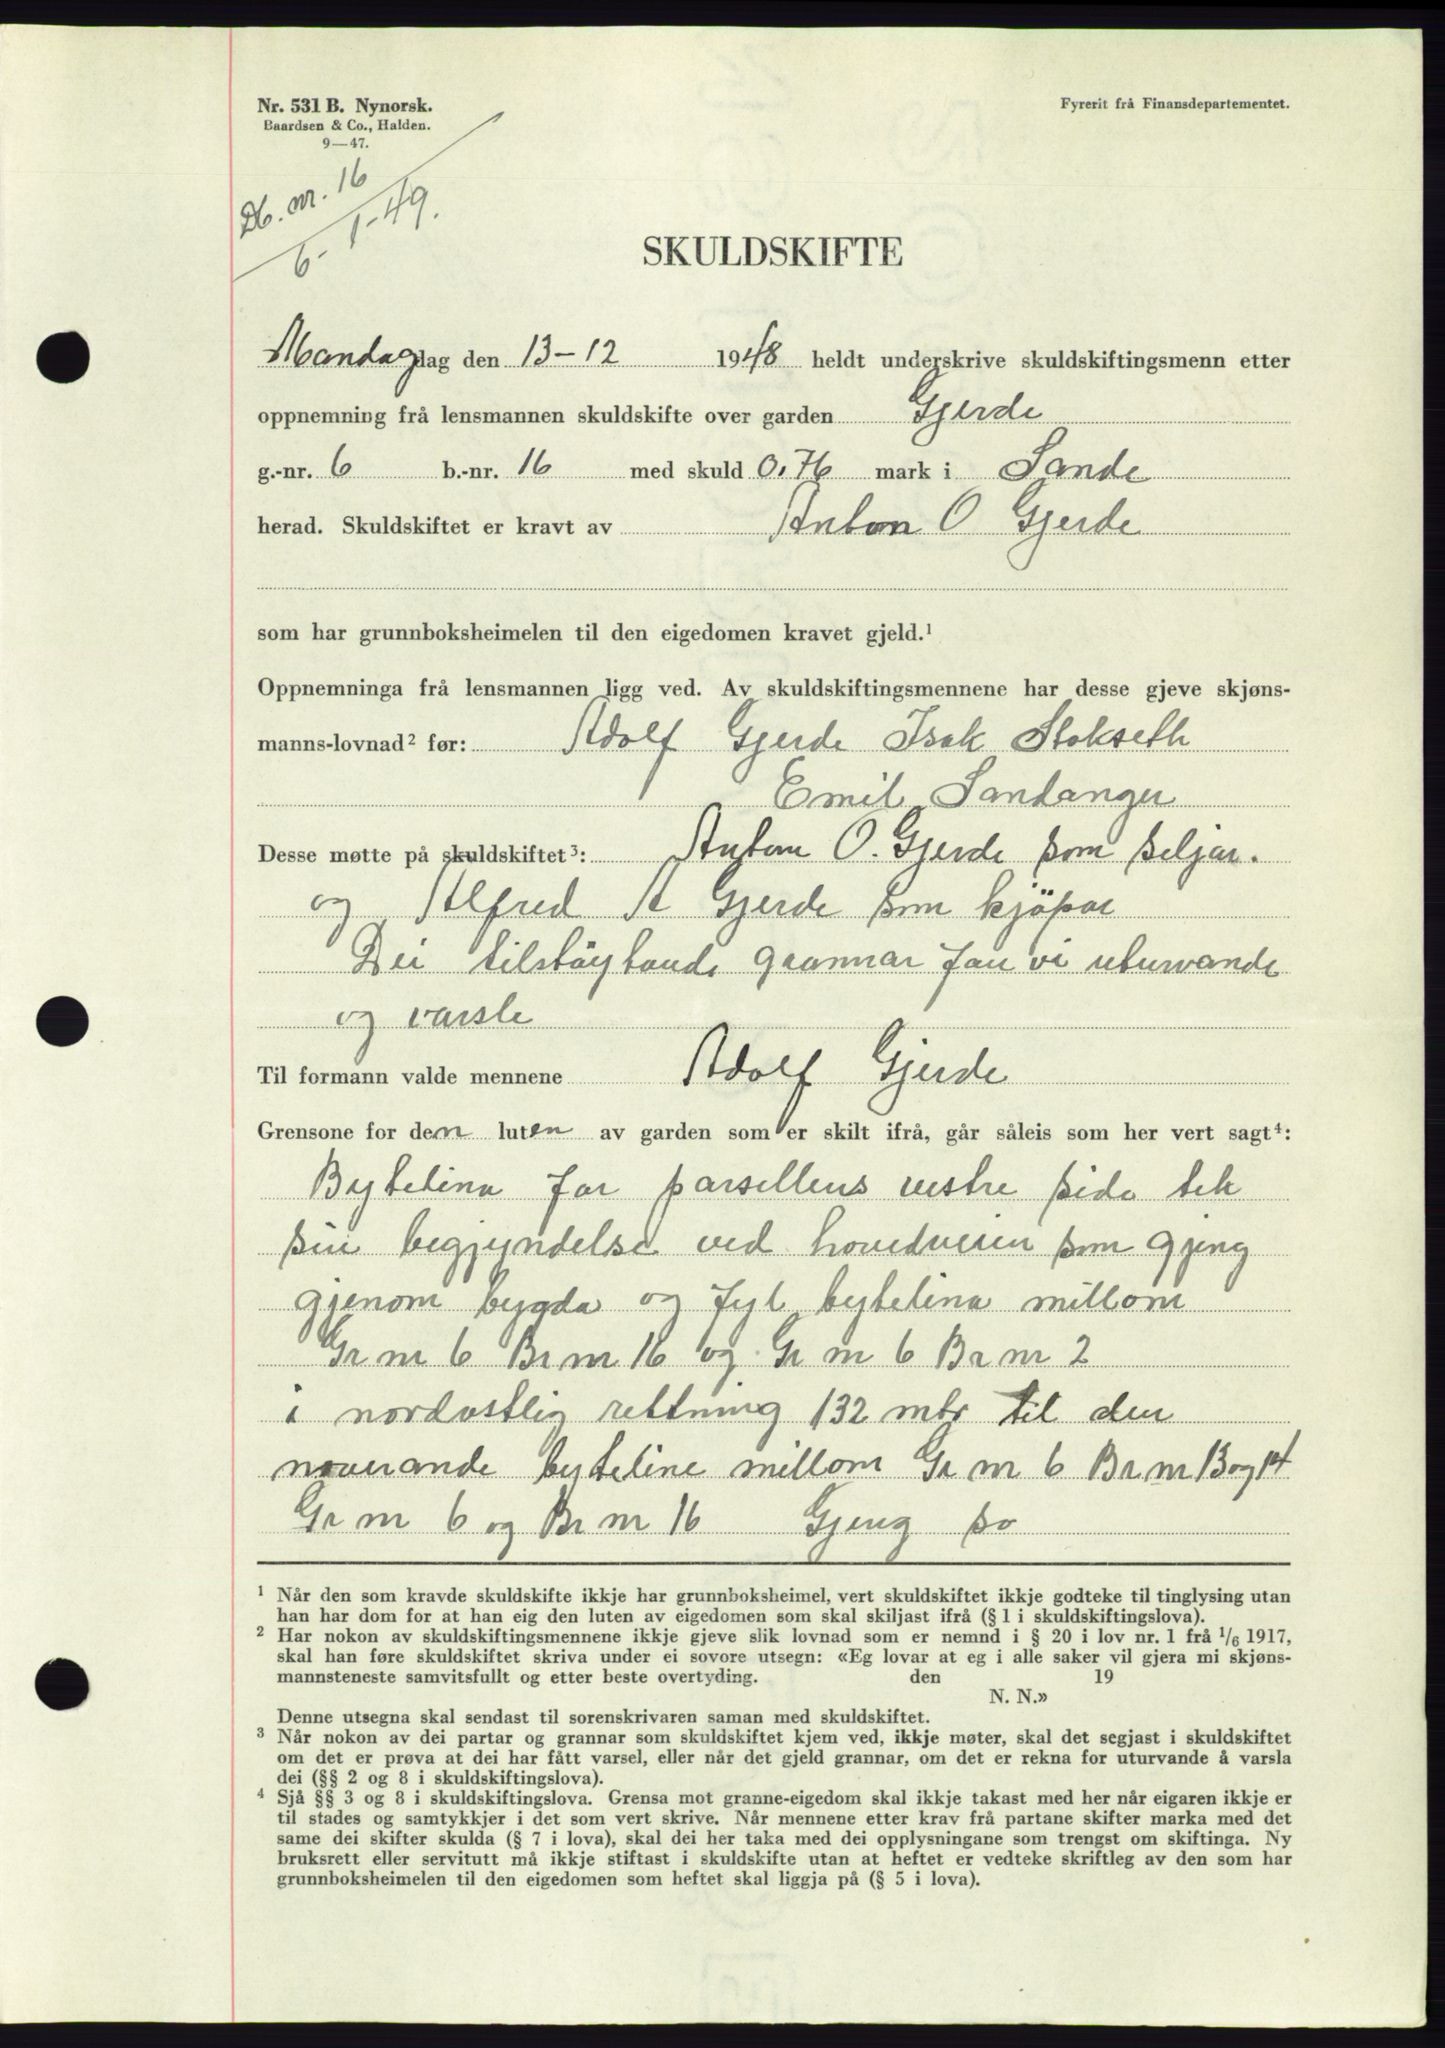 Nr. 531 B. Nynorsk.
Baardsen & Co., Halden.
9—47.
Fyrerit frå Finansdepartementet.
Db. nr. 16
6-1-49.
SKULDSKIFTE
Mandag dag den 13-12 1948 heldt underskrive skuldskiftingsmenn etter
oppnemning frå lensmannen skuldskifte over garden Gjerde
g.-nr. 6 b.-nr. 16 med skuld 0.76 mark i Sande
herad. Skuldskiftet er kravt av Anton O Gjerde
som har grunnboksheimelen til den eigedomen kravet gjeld.¹
Oppnemninga frå lensmannen ligg ved. Av skuldskiftingsmennene har desse gjeve skjøns-
manns-lovnad² før: Adolf Gjerde Isak Stokseth
Emil Sandanger
Desse møtte på skuldskiftet³: Anton O. Gjerde som seljar.
og Alfred A Gjerde som kjöpar
Dei tilstöytande grannar fan vi uturvande
og varsle
Til formann valde mennene Adolf Gjerde
Grensone for den luten av garden som er skilt ifrå, går såleis som her vert sagt⁴:
Bytelina for parsellens vestre side tek
sin begjyndelse ved hovedveien som gjeng
gjenom bygda og fyl bytelina millom
Gr nr 6 Br nr 16 og Gr nr 6 Br nr 2
i nordostlig rettning 132 mtr til den
noverande byteline millom Gr nr 6 Br nr 13 og 14
Gr nr 6 og Br nr 16 Gjeng so
¹ Når den som kravde skuldskifte ikkje har grunnboksheimel, vert skuldskiftet ikkje godteke til tinglysing utan
han har dom for at han eig den luten av eigedomen som skal skiljast ifrå (§ 1 i skuldskiftingslova).
² Har nokon av skuldskiftingsmennene ikkje gjeve slik lovnad som er nemnd i § 20 i lov nr. 1 frå ¹/₆ 1917,
skal han føre skuldskiftet skriva under ei sovore utsegn: «Eg lovar at eg i alle saker vil gjera mi skjøns-
mannsteneste samvitsfullt og etter beste overtyding. den 19
N. N.»
Denne utsegna skal sendast til sorenskrivaren saman med skuldskiftet.
³ Når nokon av dei partar og grannar som skuldskiftet kjem ved, ikkje møter, skal det segjast i skuldskiftet
om det er prøva at dei har fått varsel, eller når det gjeld grannar, om det er rekna for uturvande å varsla
dei (§§ 2 og 8 i skuldskiftingslova).
⁴ Sjå §§ 3 og 8 i skuldskiftingslova. Grensa mot granne-eigedom skal ikkje takast med her når eigaren ikkje er
til stades og samtykkjer i det som vert skrive. Når mennene etter krav frå partane skifter marka med det
same dei skifter skulda (§ 7 i lova), skal dei her taka med dei opplysningane som trengst om skiftinga. Ny
bruksrett eller servitutt må ikkje stiftast i skuldskifte utan at heftet er vedteke skriftleg av den som har
grunnboksheimelen til den eigedomen som heftet skal liggja på (§ 5 i lova).